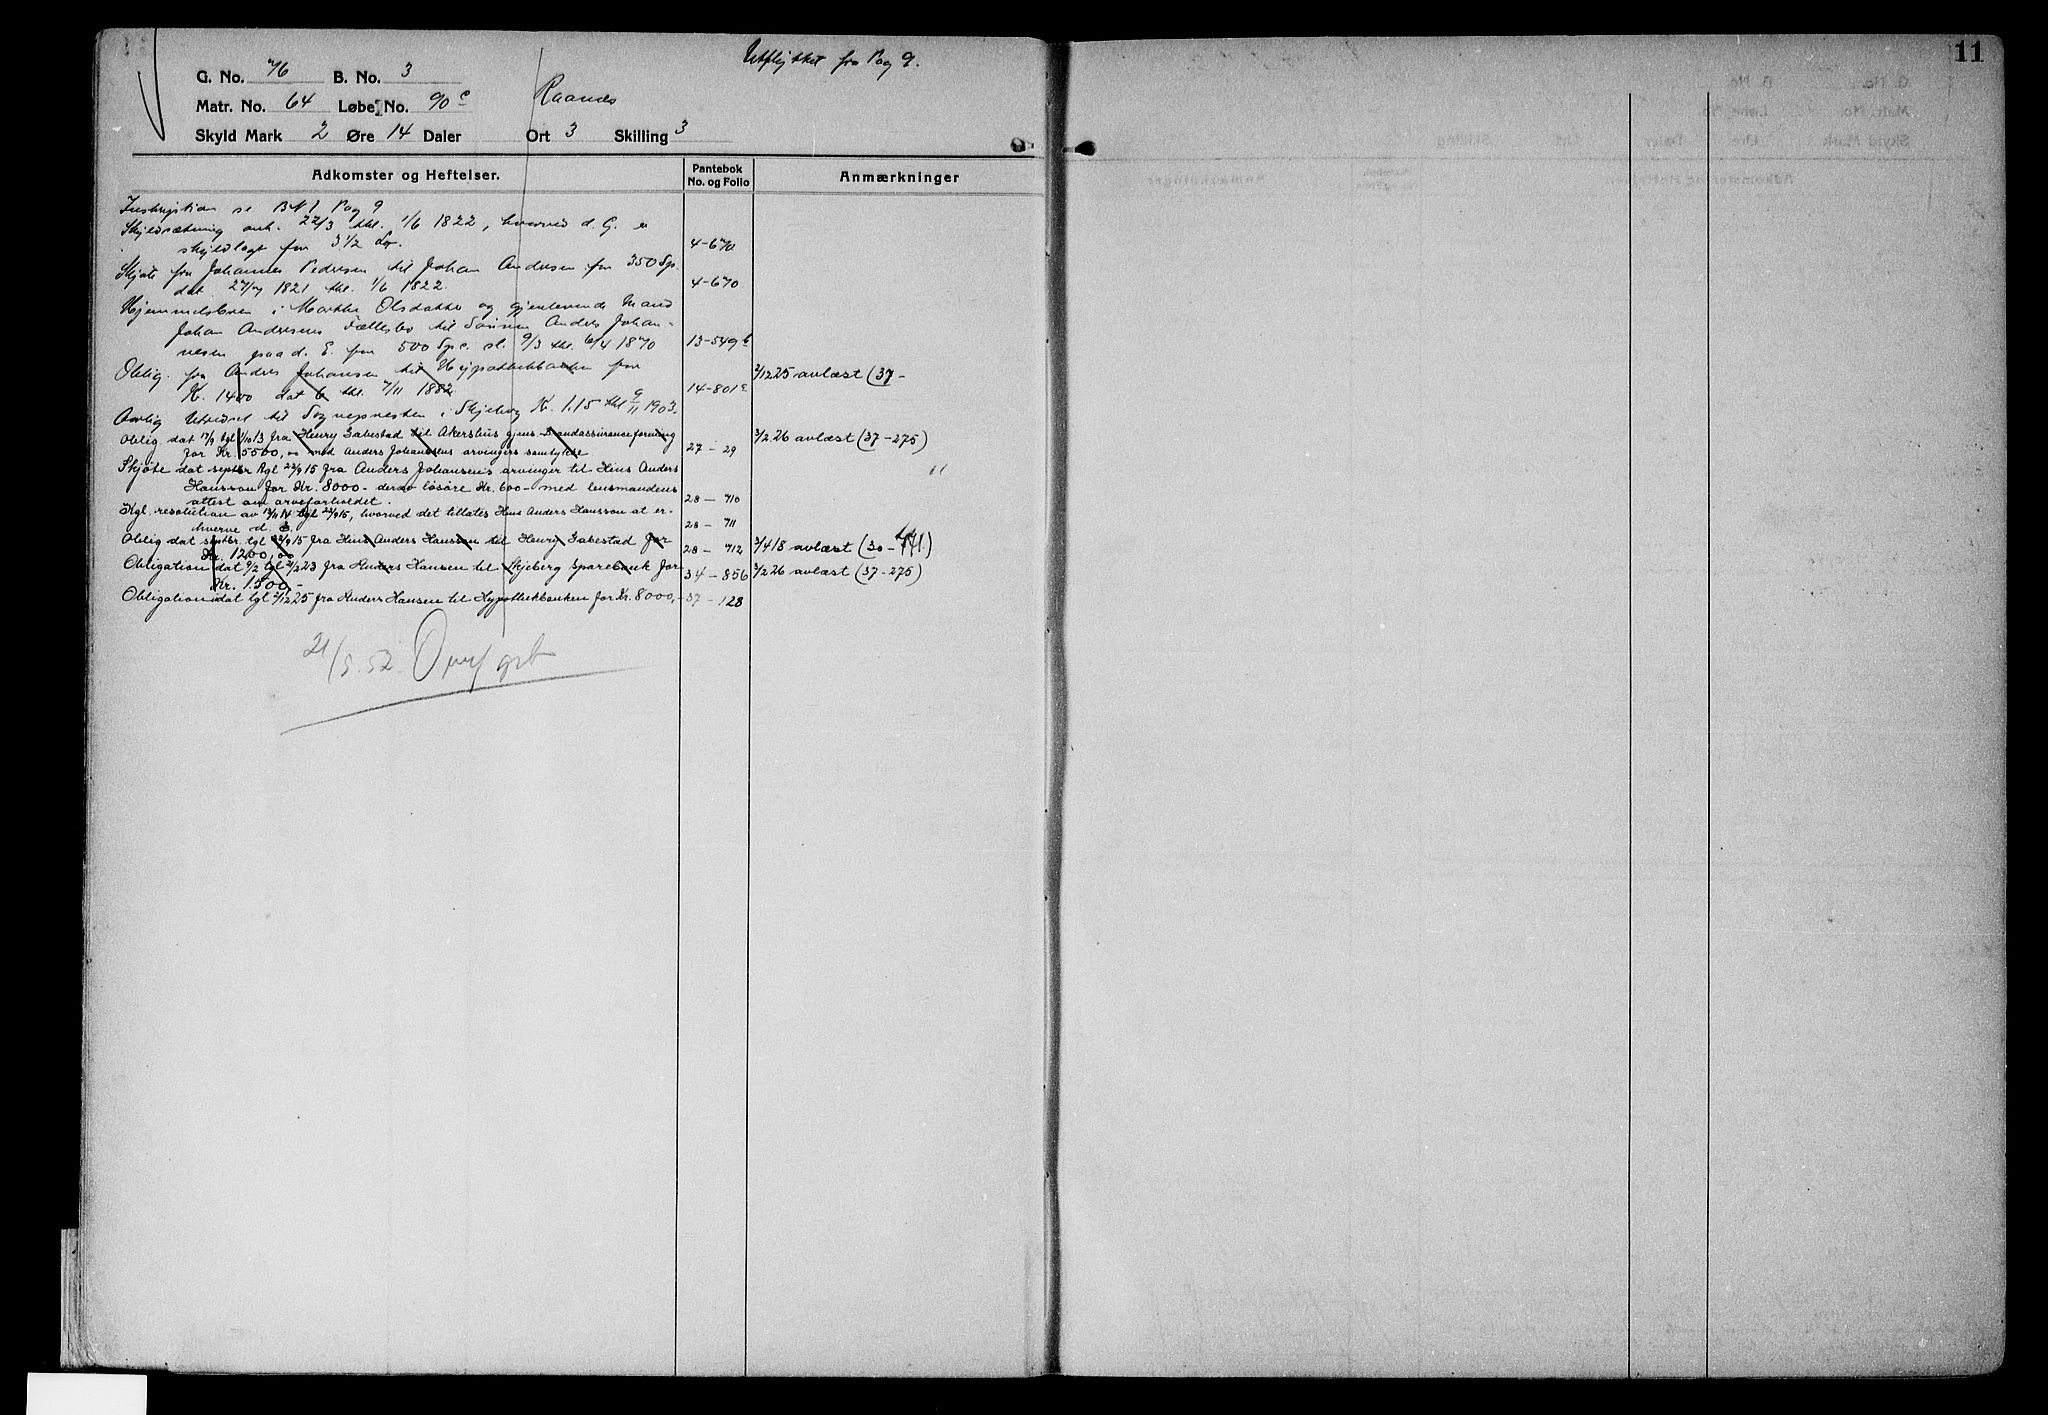 Utflyttet fra Pag 9.
11
G. No. 76 B. No. 3
Matr. No. 64 Løbe No. 90 c Raanes
Skyld Mark 2 Øre 14 Daler Ort 3 Skilling 3
Adkomster og Heftelser. Pantebok No. og Folio Anmærkninger
se B N 1 Pag 9
Skyldsætning 22/3 thl. 1/6 1822, hvorved d. G. er
skyldlagt for 3 1/2 4-670
Skjøte fra Johannes Pedersen til Johan Andersen for 350 Spd.
dat. 1821 thl. 1/6 1822. 4-670
Hjemmelsbrev i Marthe Olsdatter og gjenlevende Mand
Johan Andersens Fællesbo til Sønnen Anders Johan-
nesen paa d. E. for 500 Spd. st. 9/3 thl. 6/4 1870 13-549 b
Oblig. fra Anders Johansen til Hypothekbanken for 2/12 25 avlæst (37-
K. 1400 dat 6 thl. 7/11 1882. 14-801 c
Aarlig til Sognepresten i Skjeberg K. 1.15 thl 9/11 1903.
Oblig dat 17/9 tgl 1/10 13 fra Henry Gabestad til Akershus gjens. Brandassuranceforening 3/2 26 avlæst (37-275)
for Kr. 5500,00 med Anders Johansens arvingers samtykke 27-29
Skjøte dat septbr tgl 22/9 15 fra Anders Johansens arvinger til Hans Anders "
Hansson for Kr. 8000- derav løsøre Kr. 600- med lensmandens 28-710
attest om arveforholdet.
Kgl. resolution av 13/11 14 tgl 22/9 15, hvorved det tillates Hans Anders Hansson at er-
hverve d. E. 28-711
Oblig dat septbr. tgl 22/9 15 fra Hans Anders Hansson til Henry Gabestad for
Kr. 1200,00 28-712 3/4 18 avlæst (30-
Obligation dat 9/2 tgl 21/2 23 fra Anders Hansen til Skjeberg Sparebank for 34-856 3/2 26 avlæst (37-275)
Kr. 1500,-
Obligation dat tgl 2/12 25 fra Anders Hansen til Hypothekbanken for Kr. 8000,- 37-128
21/5.52.